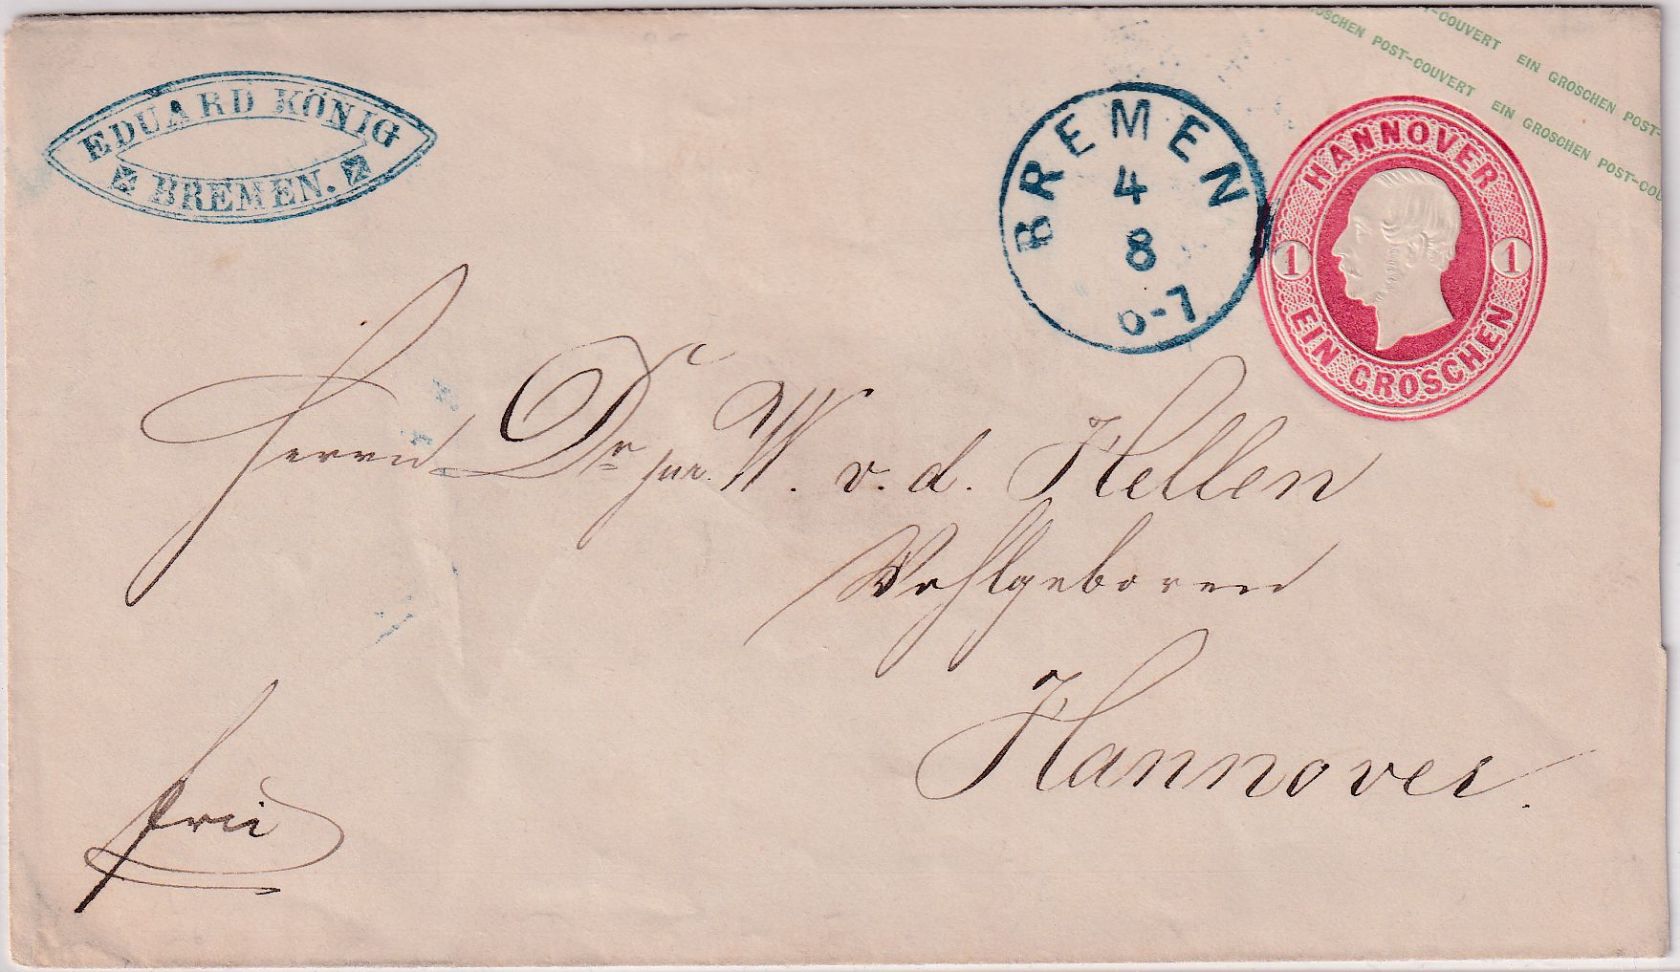 OSCHEN POST-COUVERT EIN GROSCHEN POST-COU
T-COUVERT EIN GROSCHEN POST-
EDUARD KÖNIG
BREMEN.
BREMEN
4
8
6-7
HANNOVER
1 1
EIN GROSCHEN
Herrn Dr jur. W. v. d. Hellen
Wohlgeboren
Hannover.
frei